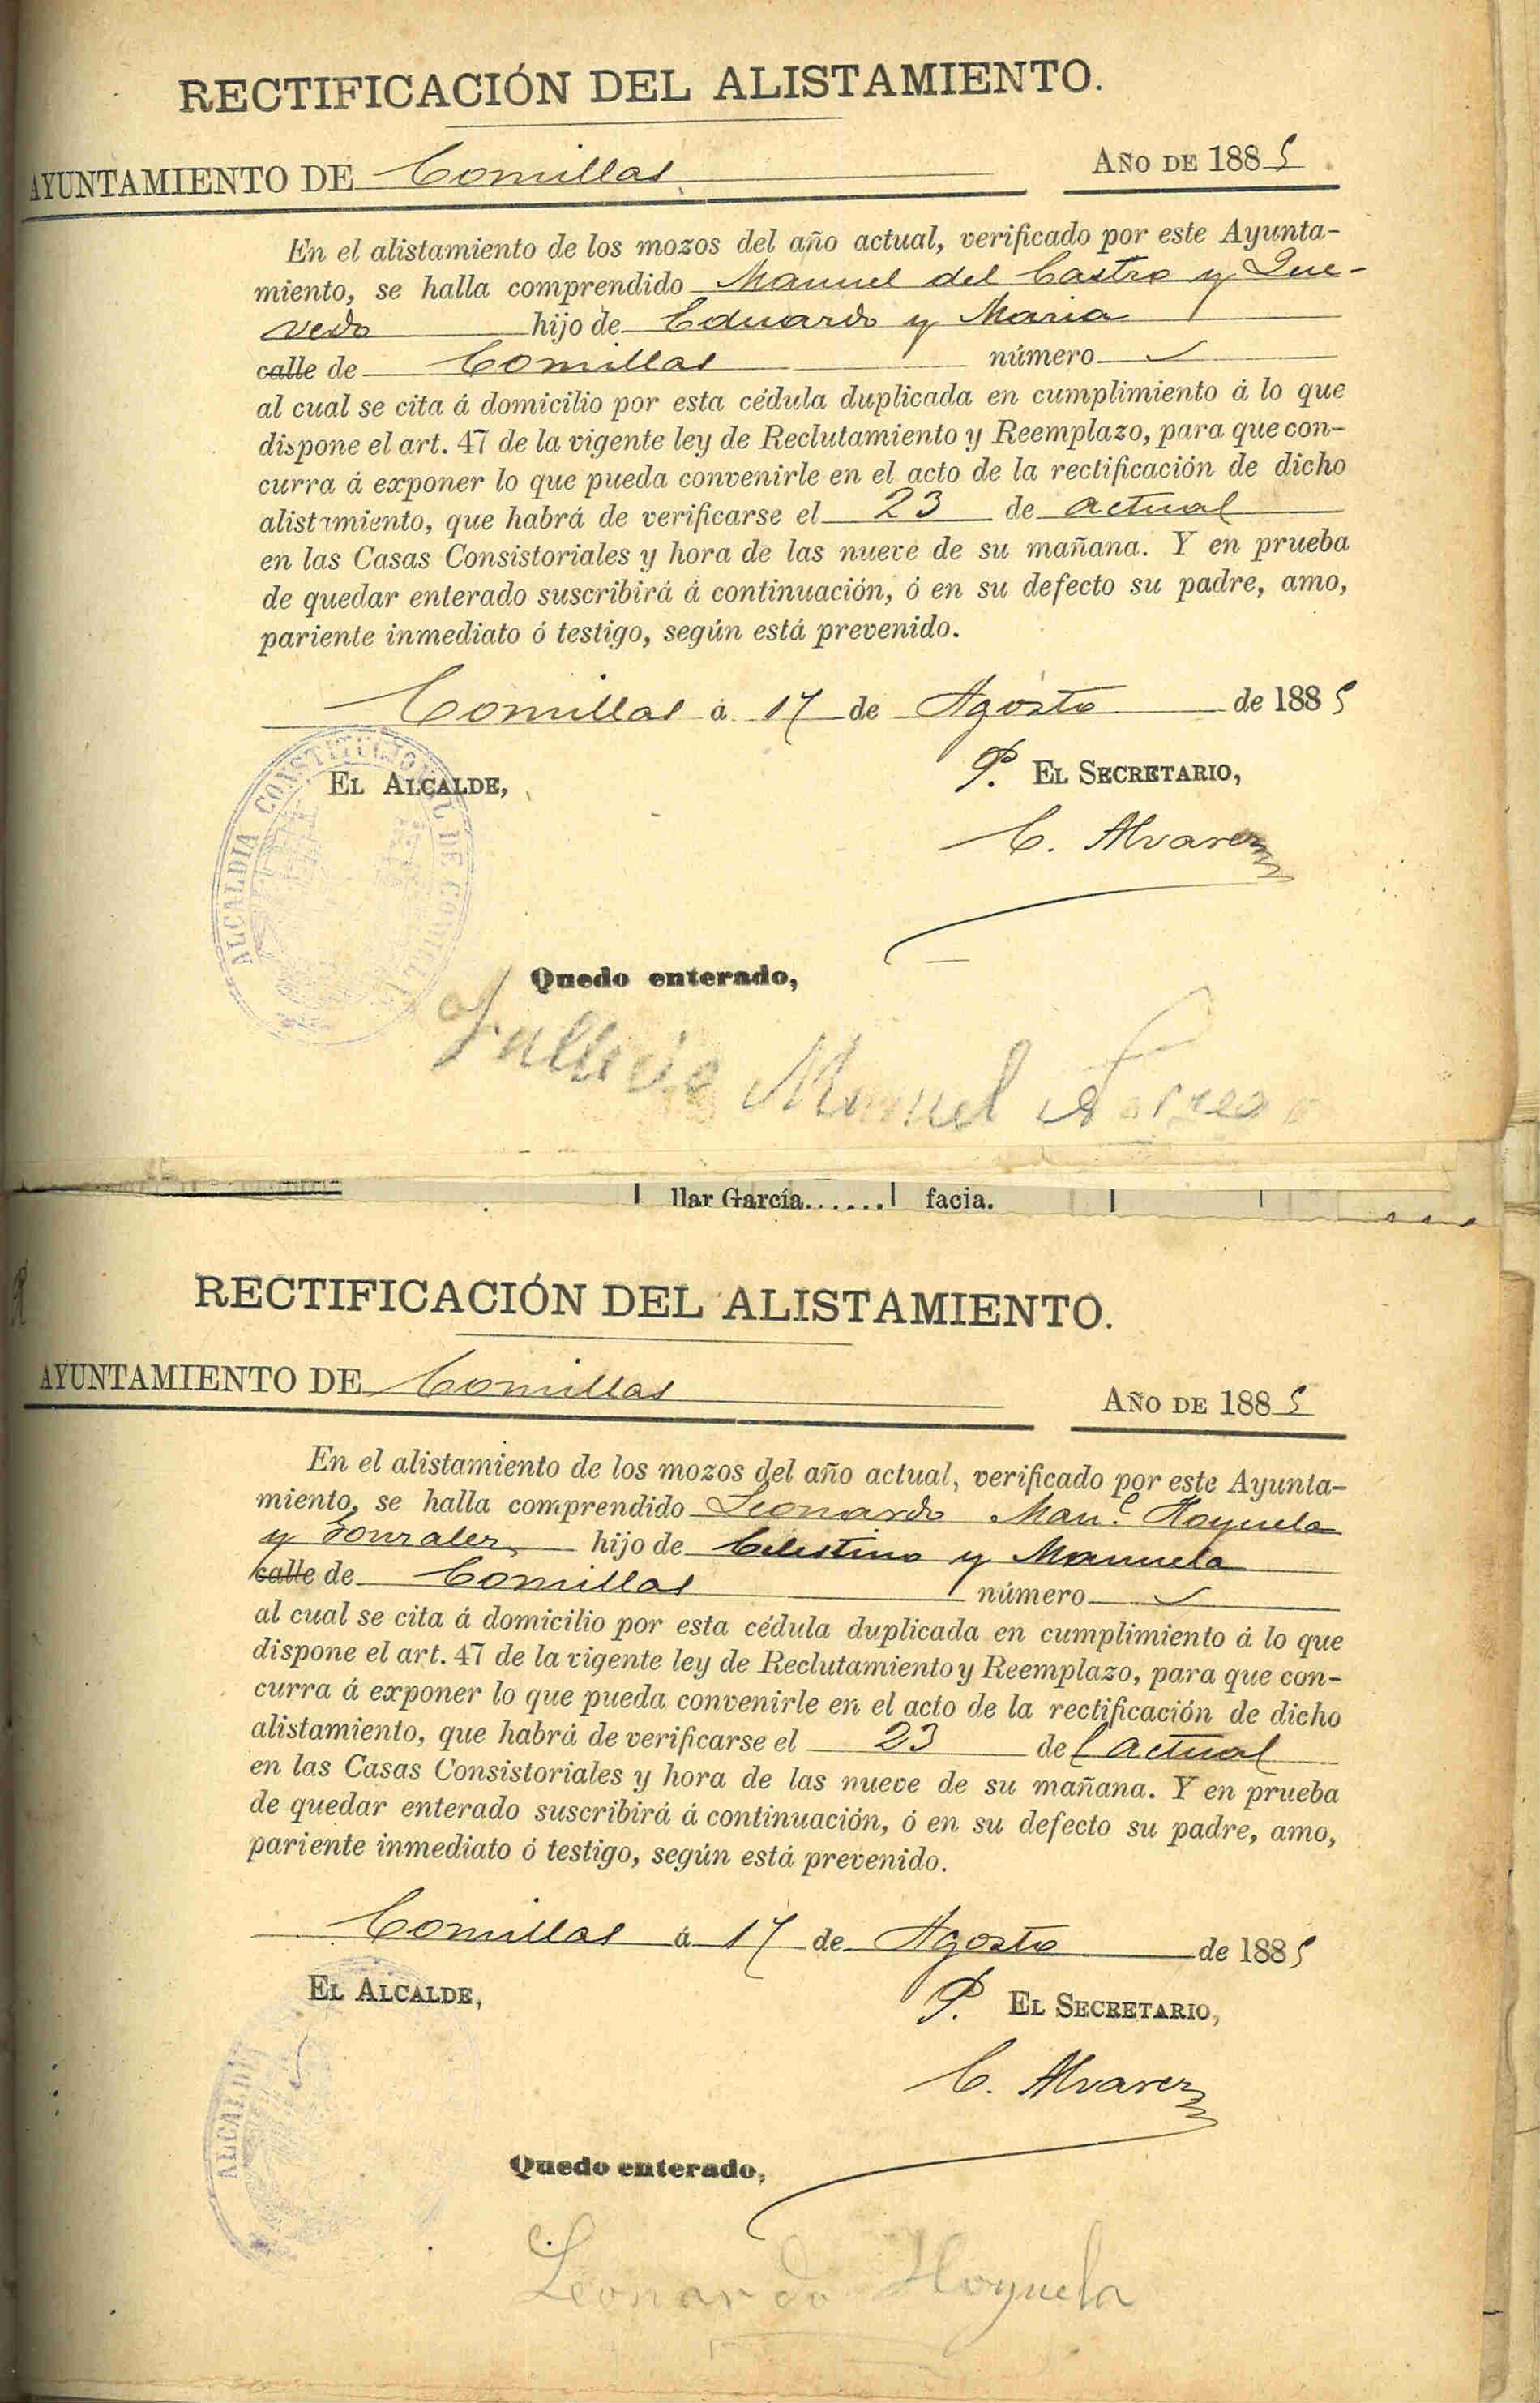 RECTIFICACIÓN DEL ALISTAMIENTO.
AYUNTAMIENTO DE Comillas AÑO DE 1885
En el alistamiento de los mozos del año actual, verificado por este Ayunta-
miento, se halla comprendido Manuel del Castro y Que-
vedo hijo de Eduardo y Maria
calle de Comillas número
al cual se cita á domicilio por esta cédula duplicada en cumplimiento á lo que
dispone el art. 47 de la vigente ley de Reclutamiento y Reemplazo, para que con-
curra á exponer lo que pueda convenirle en el acto de la rectificación de dicho
alistamiento, que habrá de verificarse el 23 de actual
en las Casas Consistoriales y hora de las nueve de su mañana. Y en prueba
de quedar enterado suscribirá á continuación, ó en su defecto su padre, amo,
pariente inmediato ó testigo, según está prevenido.
Comillas á 17 de Agosto de 1885
EL ALCALDE, P. EL SECRETARIO,
ALCALDIA CONSTITUCIONAL DE COMILLAS
C. Alvarez
Quedo enterado,
Manuel
llar García...... facia.
RECTIFICACIÓN DEL ALISTAMIENTO.
AYUNTAMIENTO DE Comillas AÑO DE 1885
En el alistamiento de los mozos del año actual, verificado por este Ayunta-
miento, se halla comprendido Leonardo Man.l Hoyuela
y Gonzalez hijo de Celestino y Manuela
calle de Comillas número
al cual se cita á domicilio por esta cédula duplicada en cumplimiento á lo que
dispone el art. 47 de la vigente ley de Reclutamiento y Reemplazo, para que con-
curra á exponer lo que pueda convenirle en el acto de la rectificación de dicho
alistamiento, que habrá de verificarse el 23 del actual
en las Casas Consistoriales y hora de las nueve de su mañana. Y en prueba
de quedar enterado suscribirá á continuación, ó en su defecto su padre, amo,
pariente inmediato ó testigo, según está prevenido.
Comillas á 17 de Agosto de 1885
EL ALCALDE, P. EL SECRETARIO,
ALCALDIA
C. Alvarez
Quedo enterado,
Leonardo Hoyuela